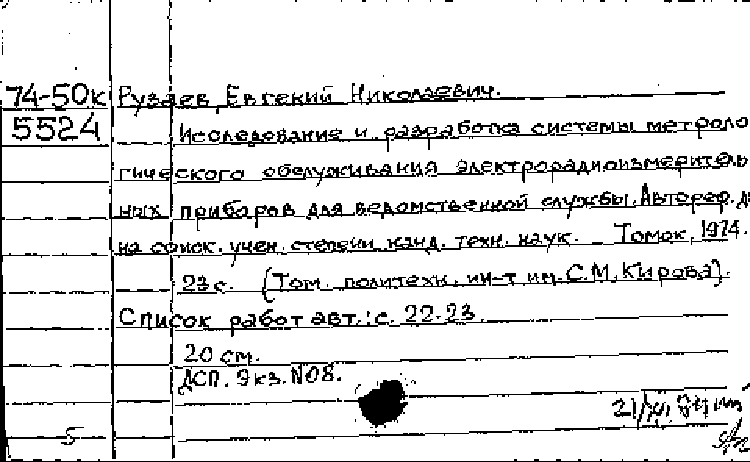 74-50к Рузаев Евгений Николаевич.
5524 Исследование и разработка системы метроло
гического обслуживания электрорадиоизмеритель
ных приборов для ведомственной службы. Автореф. д
на соиск. учен. степени канд. техн. наук. Томск, 1974.
23 с. (Том. политехн. ин-т им. С.М. Кирова).
Список работ авт.: с. 22-23.
20 см.
ДСП. Экз. N08.
5